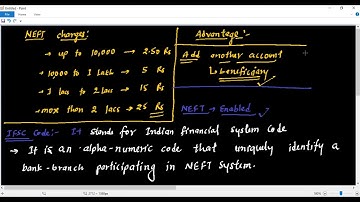 NEFT charges:-
→ up to 10,000 → 2.50 Rs
→ 10000 to 1 lakh → 5 Rs
→ 1 lacs to 2 lacs → 15 Rs
→ more than 2 lacs → 25 Rs
Advantage:-
Add another account
↳ beneficiary
NEFT → Enabled
IFSC Code:- It stands for Indian Financial System Code
→ It is an alpha-numeric code that uniquely identify a
bank-branch participating in NEFT System.